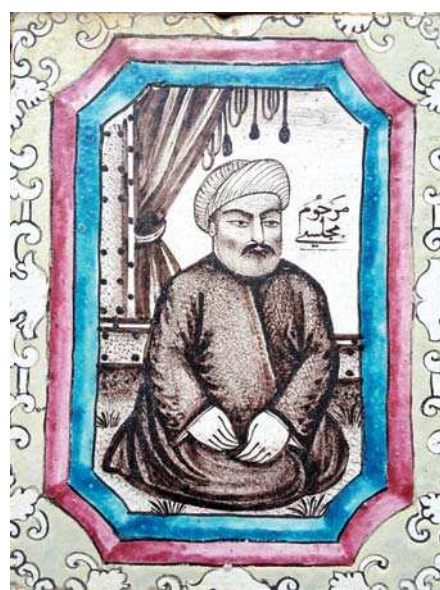 مَرحُوم
مجلسی